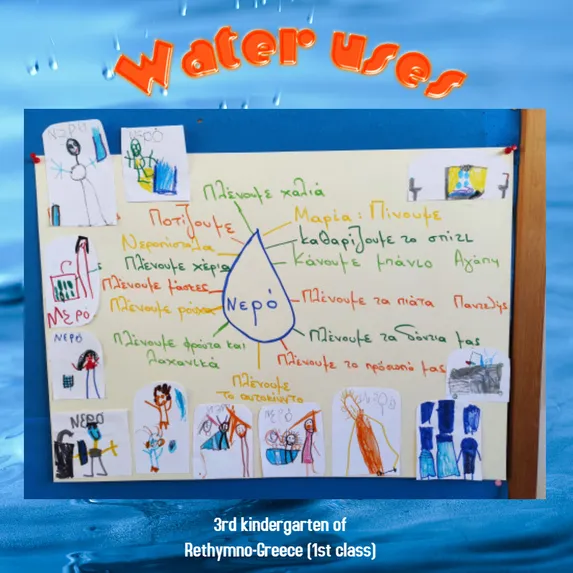 Water uses
Νερό
Νερό
Πλένουμε χαλιά
Ποτίζουμε
Μαρία: Πίνουμε
Νεροπίστολα
καθαρίζουμε το σπίτι
Πλένουμε χέρια
Κάνουμε μπάνιο Αγάπη
Πλένουμε μάσκες
Πλένουμε ρούχα
Νερό
Πλένουμε τα πιάτα Παντελής
Νερό
Πλένουμε τα δόντια μας
Πλένουμε φρούτα και
λαχανικά
Πλένουμε το πρόσωπό μας
Πλένουμε
το αυτοκίνητο
Νερό
3rd kindergarten of
Rethymno-Greece (1st class)